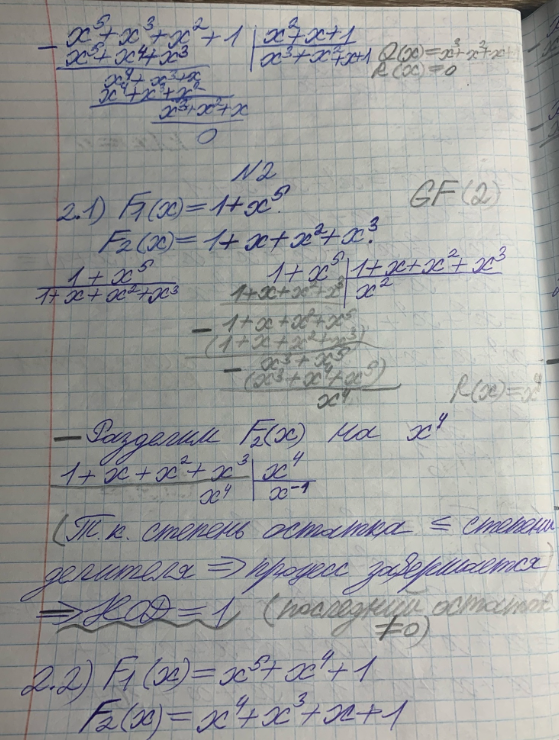 - x⁵ + x³ + x² + 1 | x² + x + 1
x⁵ + x⁴ + x³ | x³ + x² + x + 1 Q(x) = x³ + x² + x + 1
R(x) = 0
x⁴ + x³ + x²
x³ + x² + x
0
N2
2.1) F₁(x) = 1 + x⁵ GF(2)
F₂(x) = 1 + x + x² + x³
1 + x⁵ 1 + x⁵ | 1 + x + x² + x³
1 + x + x² + x³ 1 + x + x² + x³ | x²
- 1 + x + x² + x⁵
(1 + x + x² + x³)
- x³ + x⁵
(x³ + x⁴ + x⁵)
x⁴ R(x) = x⁴
- Разделим F₂(x) на x⁴
1 + x + x² + x³ | x⁴
x⁴ | x⁻¹
(Т.к. степень остатка ≤ степени
делителя ⇒ процесс завершается)
⇒ НОД = 1 (последний остаток
≠0)
2.2) F₁(x) = x⁵ + x⁴ + 1
F₂(x) = x⁴ + x³ + x + 1